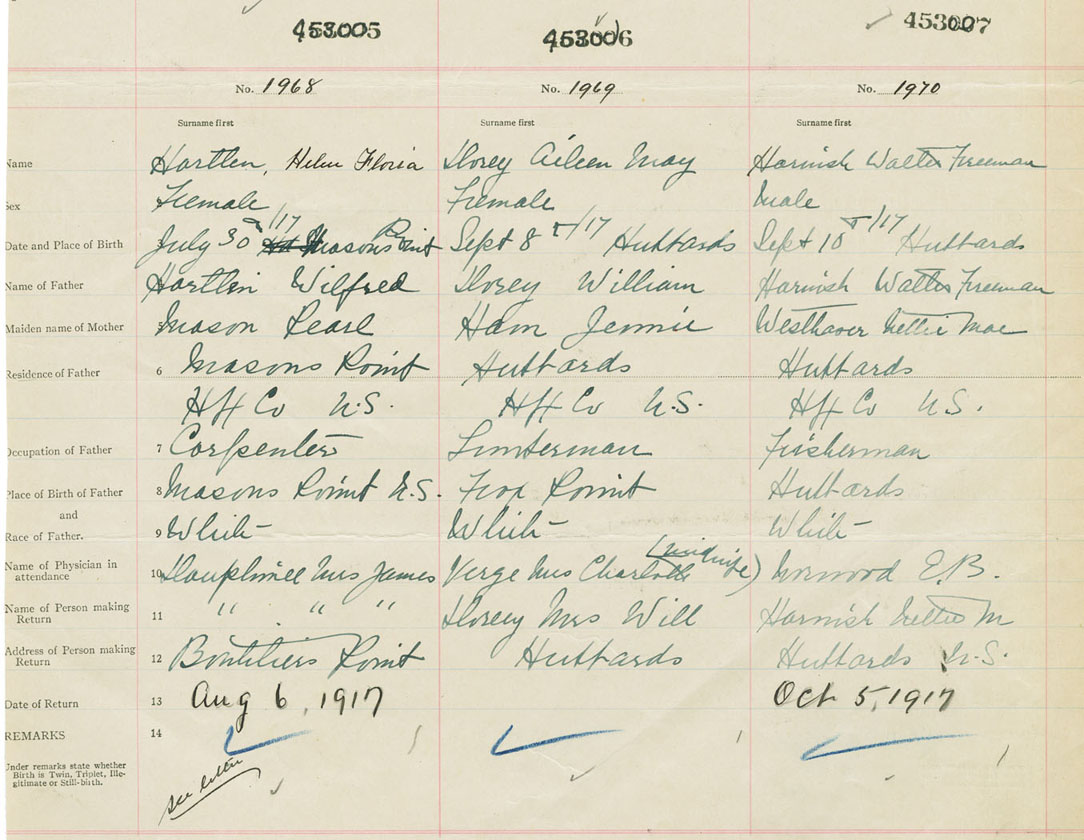 453005 453006 453007
No. 1968 No. 1969 No. 1970
Surname first Surname first Surname first
Name Hartlen, Helen Floria Dorey Aileen May Harnish Walter Freeman
Sex Female Female Male
Date and Place of Birth July 30th/17 Masons Point Sept 8th/17 Hubbards Sept 10th/17 Hubbards
Name of Father Hartlin Wilfred Dorey William Harnish Walter Freeman
Maiden name of Mother 5 Mason Pearl Ham Jennie Westhaver Nettie Mae
Residence of Father 6 Masons Point Hubbards Hubbards
Hfx Co N.S. Hfx Co N.S. Hfx Co N.S.
Occupation of Father 7 Carpenter Lumberman Fisherman
Place of Birth of Father 8 Masons Point N.S. Fox Point Hubbards
and
Race of Father. 9 White White White
Name of Physician in
attendance 10 Dauphinee Mrs James Verge Mrs Charlotte (midwife) Norwood E.B.
Name of Person making
Return 11 " " " Dorey Mrs Will Harnish Nettie M
Address of Person making
Return 12 Boutiliers Point Hubbards Hubbards N.S.
Date of Return 13 Aug 6, 1917 Oct 5, 1917
REMARKS 14
Under remarks state whether
Birth is Twin, Triplet, Ille-
gitimate or Still-birth.
see letter